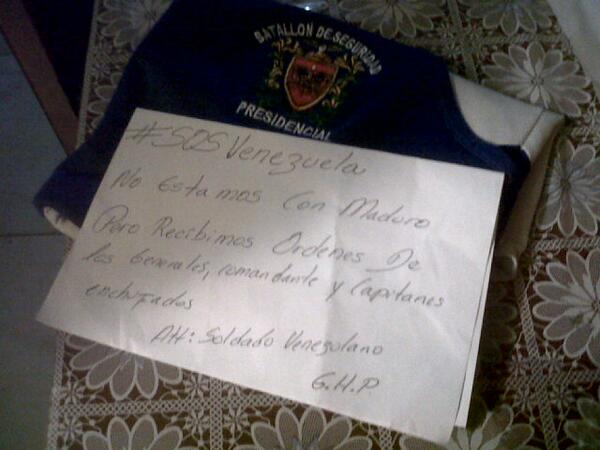 BATALLON DE SEGURIDAD
PRESIDENCIAL
#SOS Venezuela
No Estamos Con Maduro
Pero Recibimos Ordenes De
los Generales, comandante y Capitanes
enchufados
Att: Soldado Venezolano
G.H.P